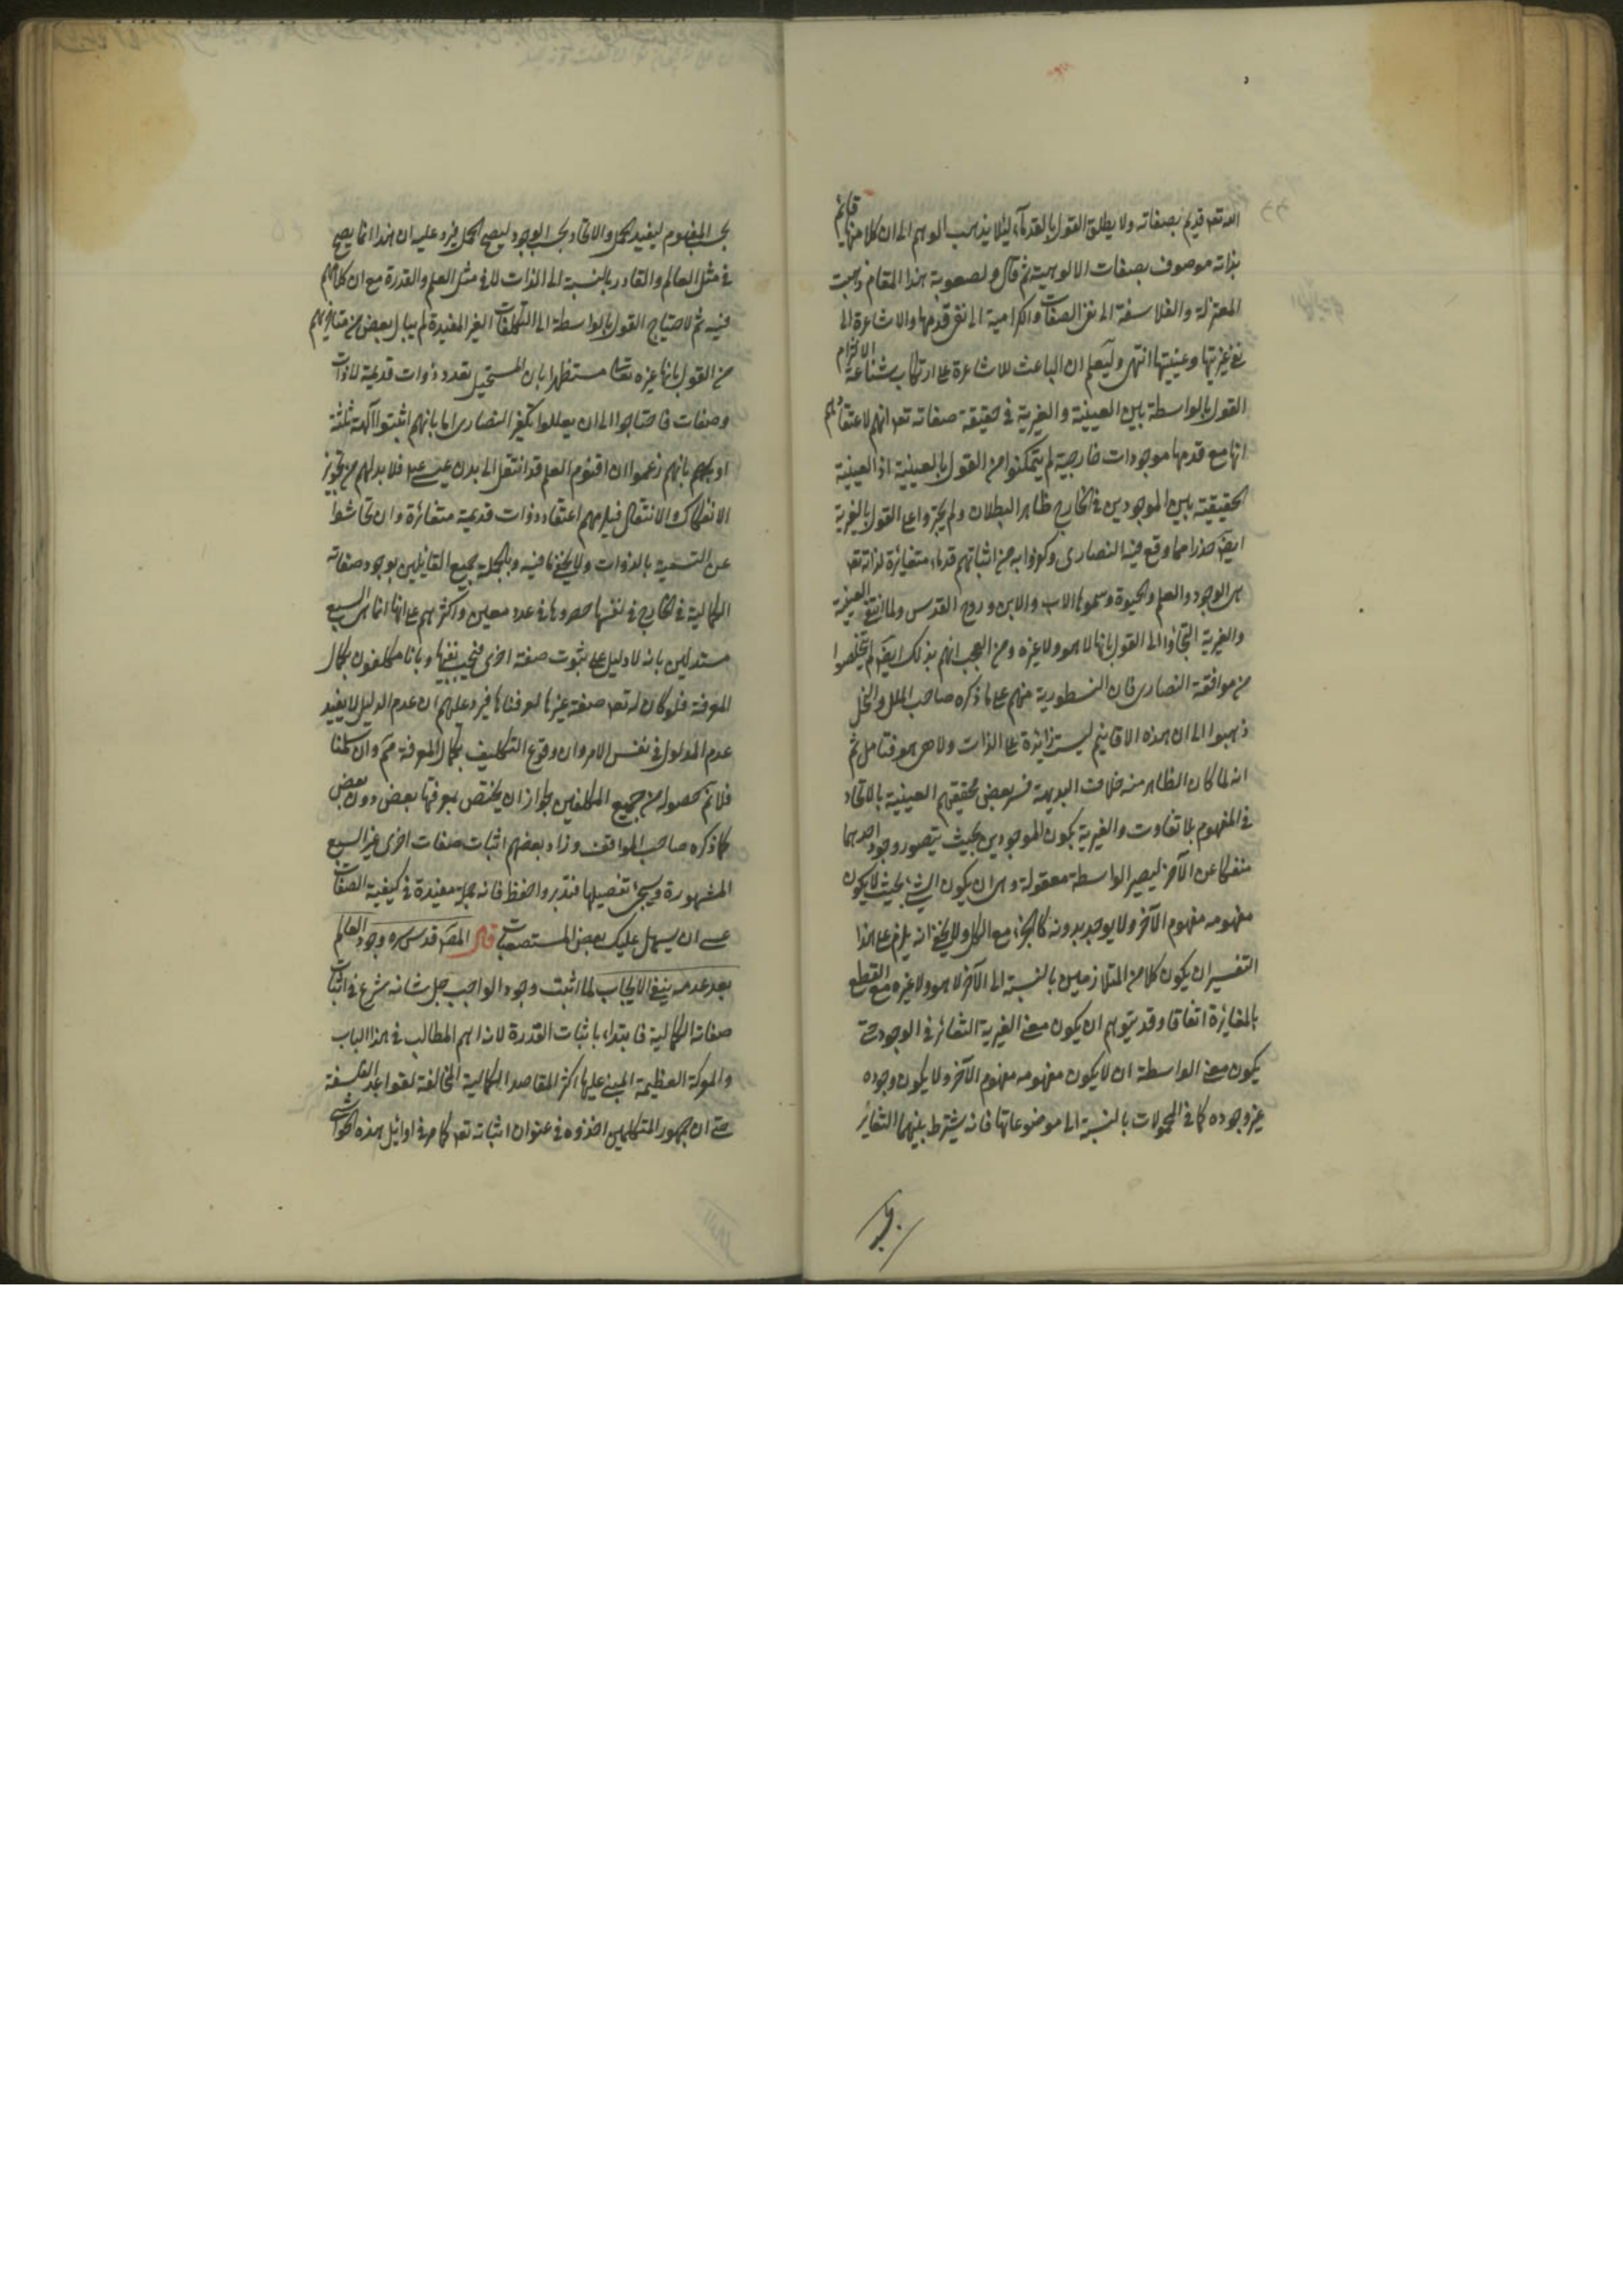 الله تعه قديم بصفاته ولا يطلق القول بالقدمآء لئلا يذهب الوهم الى ان كلا منها قائم
بذاته موصوف بصفات الالوهية ثم قال ولصعوبة هذا المقام ذهبت
المعتزلة والفلاسفة الى نفى الصفات والكرامية الى نفى قدمها والاشاعرة الى
نفى غيريتها وعينيتها انتهى وليعلم ان الباعث للاشاعرة على ارتكاب شناعة الالتزام
القول بالواسطة بين العينية والغيرية فى حقيقة صفاته تعه انهم لاعتقادهم
انها مع قدمها موجودات خارجية لم يتمكنوا من القول بالعينية اذ العينية
الحقيقية بين الموجودين فى الخارج ظاهر البطلان ولم يجترؤا على القول بالغيرية
ايض حذرا مما وقع فيه النصارى وكفروا به من اثباتهم قدماء متغايرة لذاته تعه
هى الوجود والعلم والحيوة وسموها الاب والابن وروح القدس ولما انتفى العينية
والغيرية التجاؤا الى القول بانها لا هو ولا غيره ومن العجب انهم بذلك ايض لم يتخلصوا
من موافقة النصارى فان النسطورية منهم على ما ذكره صاحب الملل والنحل
ذهبوا الى ان هذه الاقانيم ليست زائدة على الذات ولا هى هو فتامل ثم
انه لما كان الظاهر منه خلاف البديهة فسر بعض محققيهم العينية بالاتحاد
فى المفهوم بلا تفاوت والغيرية بكون الموجودين بحيث يتصور وجود احدهما
منفكا عن الآخر ليصير الواسطة معقولة وهى ان يكون الشىء بحيث لا يكون
مفهومه مفهوم الآخر ولا يوجد بدونه كالجزء مع الكل ولا يخفى انه يلزم على هذا
التفسير ان يكون كلا من المتلازمين بالنسبة الى الآخر لا هو ولا غيره مع القطع
بالمغايرة اتفاقا وقد يتوهم ان يكون معنى الغيرية التغاير فى الوجود حتى
يكون معنى الواسطة ان لا يكون مفهومه مفهوم الآخر ولا يكون وجوده
غير وجوده كما فى المحمولات بالنسبة الى موضوعاتها فانه يشترط بينهما التغاير
بحسب
بحسب المفهوم ليفيد الحمل والاتحاد بحسب الوجود ليصح الحمل فيرد عليه ان هذا انما يصح
فى مثل العالم والقادر بالنسبة الى الذات لا فى مثل العلم والقدرة مع ان كلامهم
فيه ثم لاحتياج القول بالواسطة الى التكلفات الغير المفيدة لم يبال بعض من متاخريهم
من القول بانها غيره تعالى مستظهرا بان المستحيل تعدد ذوات قديمة لا ذات
وصفات فاحتاجوا الى ان يعللوا تكفير النصارى اما بانهم اثبتوا آلهة ثلثة
او بانهم زعموا ان اقنوم العلم قد انتقل الى بدن عيسى ع فلا بد لهم من تجويز
الانفكاك والانتقال فيلزمهم اعتقاد ذوات قديمة متغائرة وان تحاشوا
عن التسمية بالذوات ولا يخفى ما فيه وبالجملة جميع القايلين بوجود صفاته
الكمالية فى الخارج فى نفسها حصروها فى عدد معين واكثرهم على انها انما هى السبع
مستدلين بانه لا دليل على ثبوت صفة اخرى فيجب نفيها وبانا مكلفون بكمال
المعرفة فلو كان له تعه صفة غيرها لعرفناها فيرد عليهم ان عدم الدليل لا يفيد
عدم المدلول فى نفس الامر وان وقوع التكليف بكمال المعرفة مم وان سلمنا
فلا نم حصوله من جميع المكلفين لجواز ان يختص بمعرفتها بعض دون بعض
كما ذكره صاحب المواقف وزاد بعضهم اثبات صفات اخرى غير السبع
المشهورة وسيجئ تفصيلها فتدبر واحفظ فانه جملة مفيدة فى كيفية الصفات
عسى ان يسهل عليك بعض المستصعبات قال المص قدس سره وجود العالم
بعد عدمه ينفى الايجاب لما اثبت وجود الواجب جل شانه شرع فى اثبات
صفاته الكمالية فابتداء باثبات القدرة لانه اهم المطالب فى هذا الباب
والمعركة العظيمة المبنى عليها اكثر المقاصد الكمالية المخالفة لقواعد الفلسفة
حتى ان جمهور المتكلمين اخذوه فى عنوان اثباته تعه كما مر فى اوائل هذه الحواشى